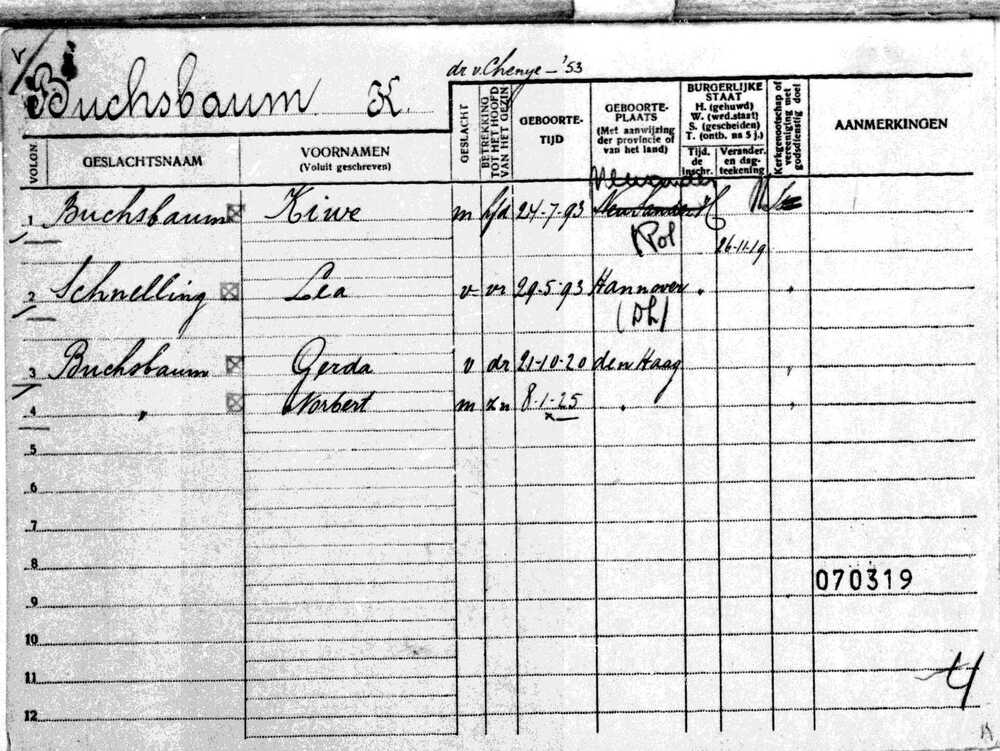 Buchsbaum K.
dr v. - '53
VOLGN. GESLACHTSNAAM VOORNAMEN (Voluit geschreven) GESLACHT BETREKKING TOT HET HOOFD VAN HET GEZIN GEBOORTE-TIJD GEBOORTE-PLAATS (Met aanwijzing der provincie of van het land) BURGERLIJKE STAAT H. (gehuwd) W. (wed.staat) S. (gescheiden) T. (ontb. na 5 j.) Tijd. de inschr. Verander. en dag-teekening Kerkgenootschap of vereeniging met godsdienstig doel AANMERKINGEN
1 Buchsbaum Kiwe m hfd 24-7-93 H
(Pol 26-11-19
2 Schnelling Lea v vr 29-5-93 Hannover " "
(Dl)
3 Buchsbaum Gerda v dr 21-10-20 den Haag "
4 " Norbert m zn 8-1-25 " "
x
5
6
7
8
070319
9
10
11
4
12